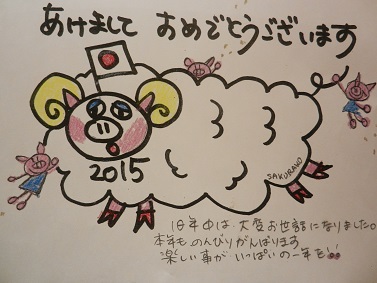 あけまして おめでとうございます
2015
SAKURAKO
旧年中は、大変お世話になりました。
本年も のんびりがんばります
楽しい事が いっぱいの一年を!!